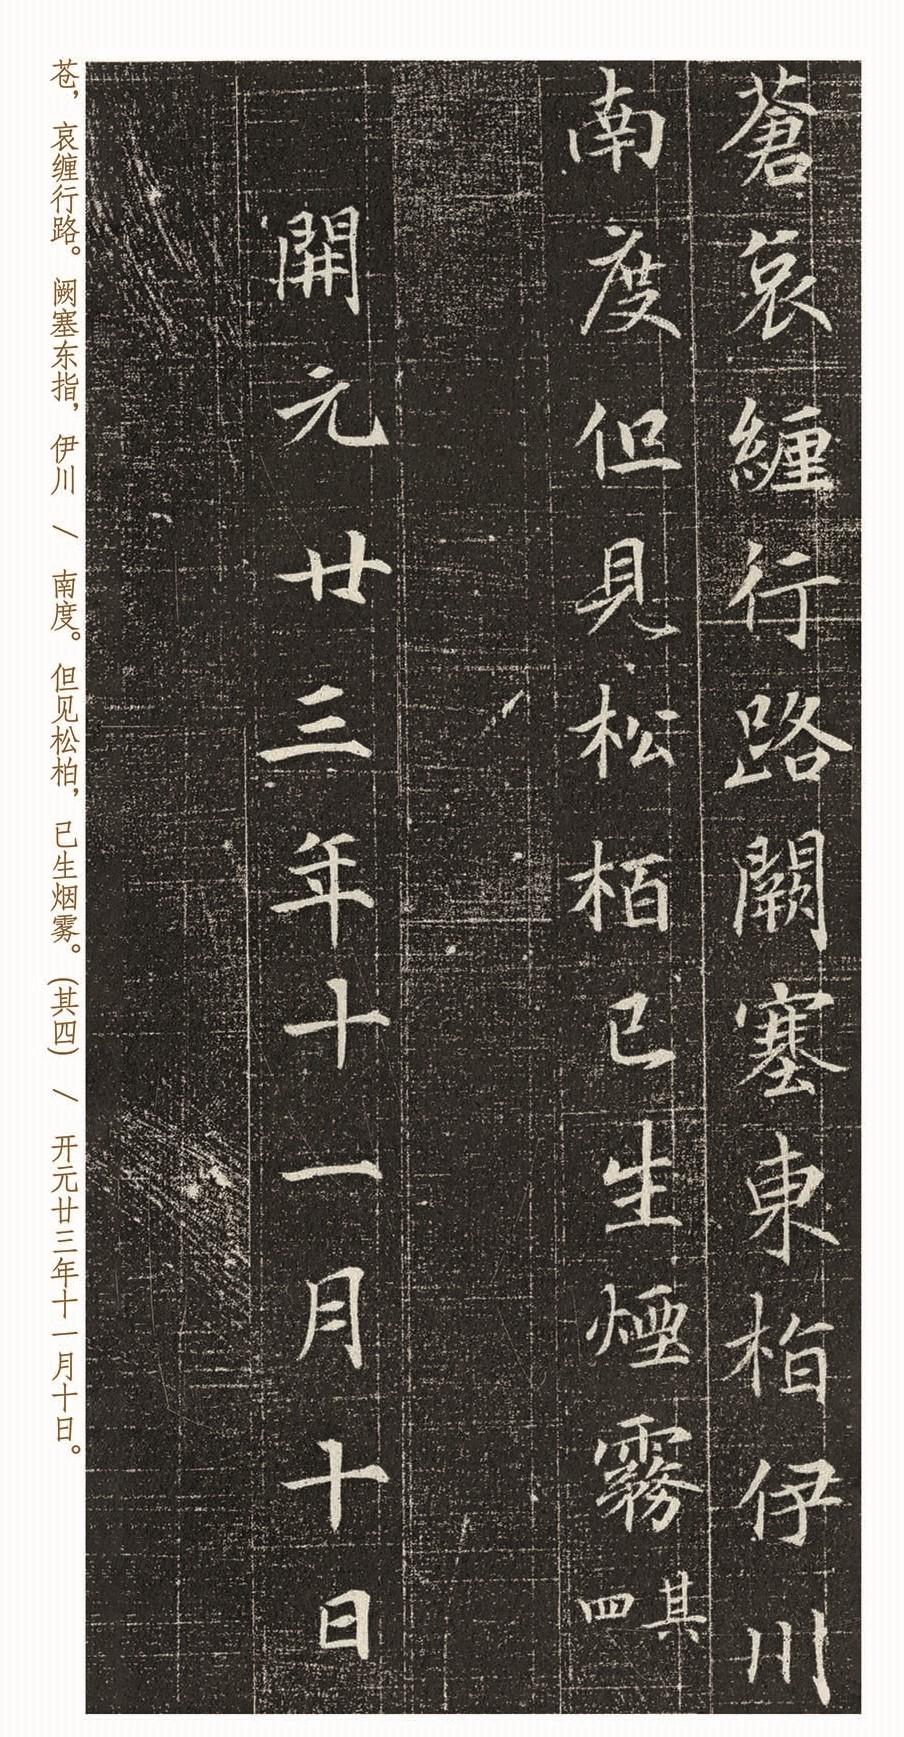 蒼哀纏行路闕塞東栺伊川
南度但見松栢已生煙霧其四
開元廿三年十一月十日
苍，哀缠行路。阙塞东指，伊川 / 南度。但见松柏，已生烟雾。（其四） / 开元廿三年十一月十日。